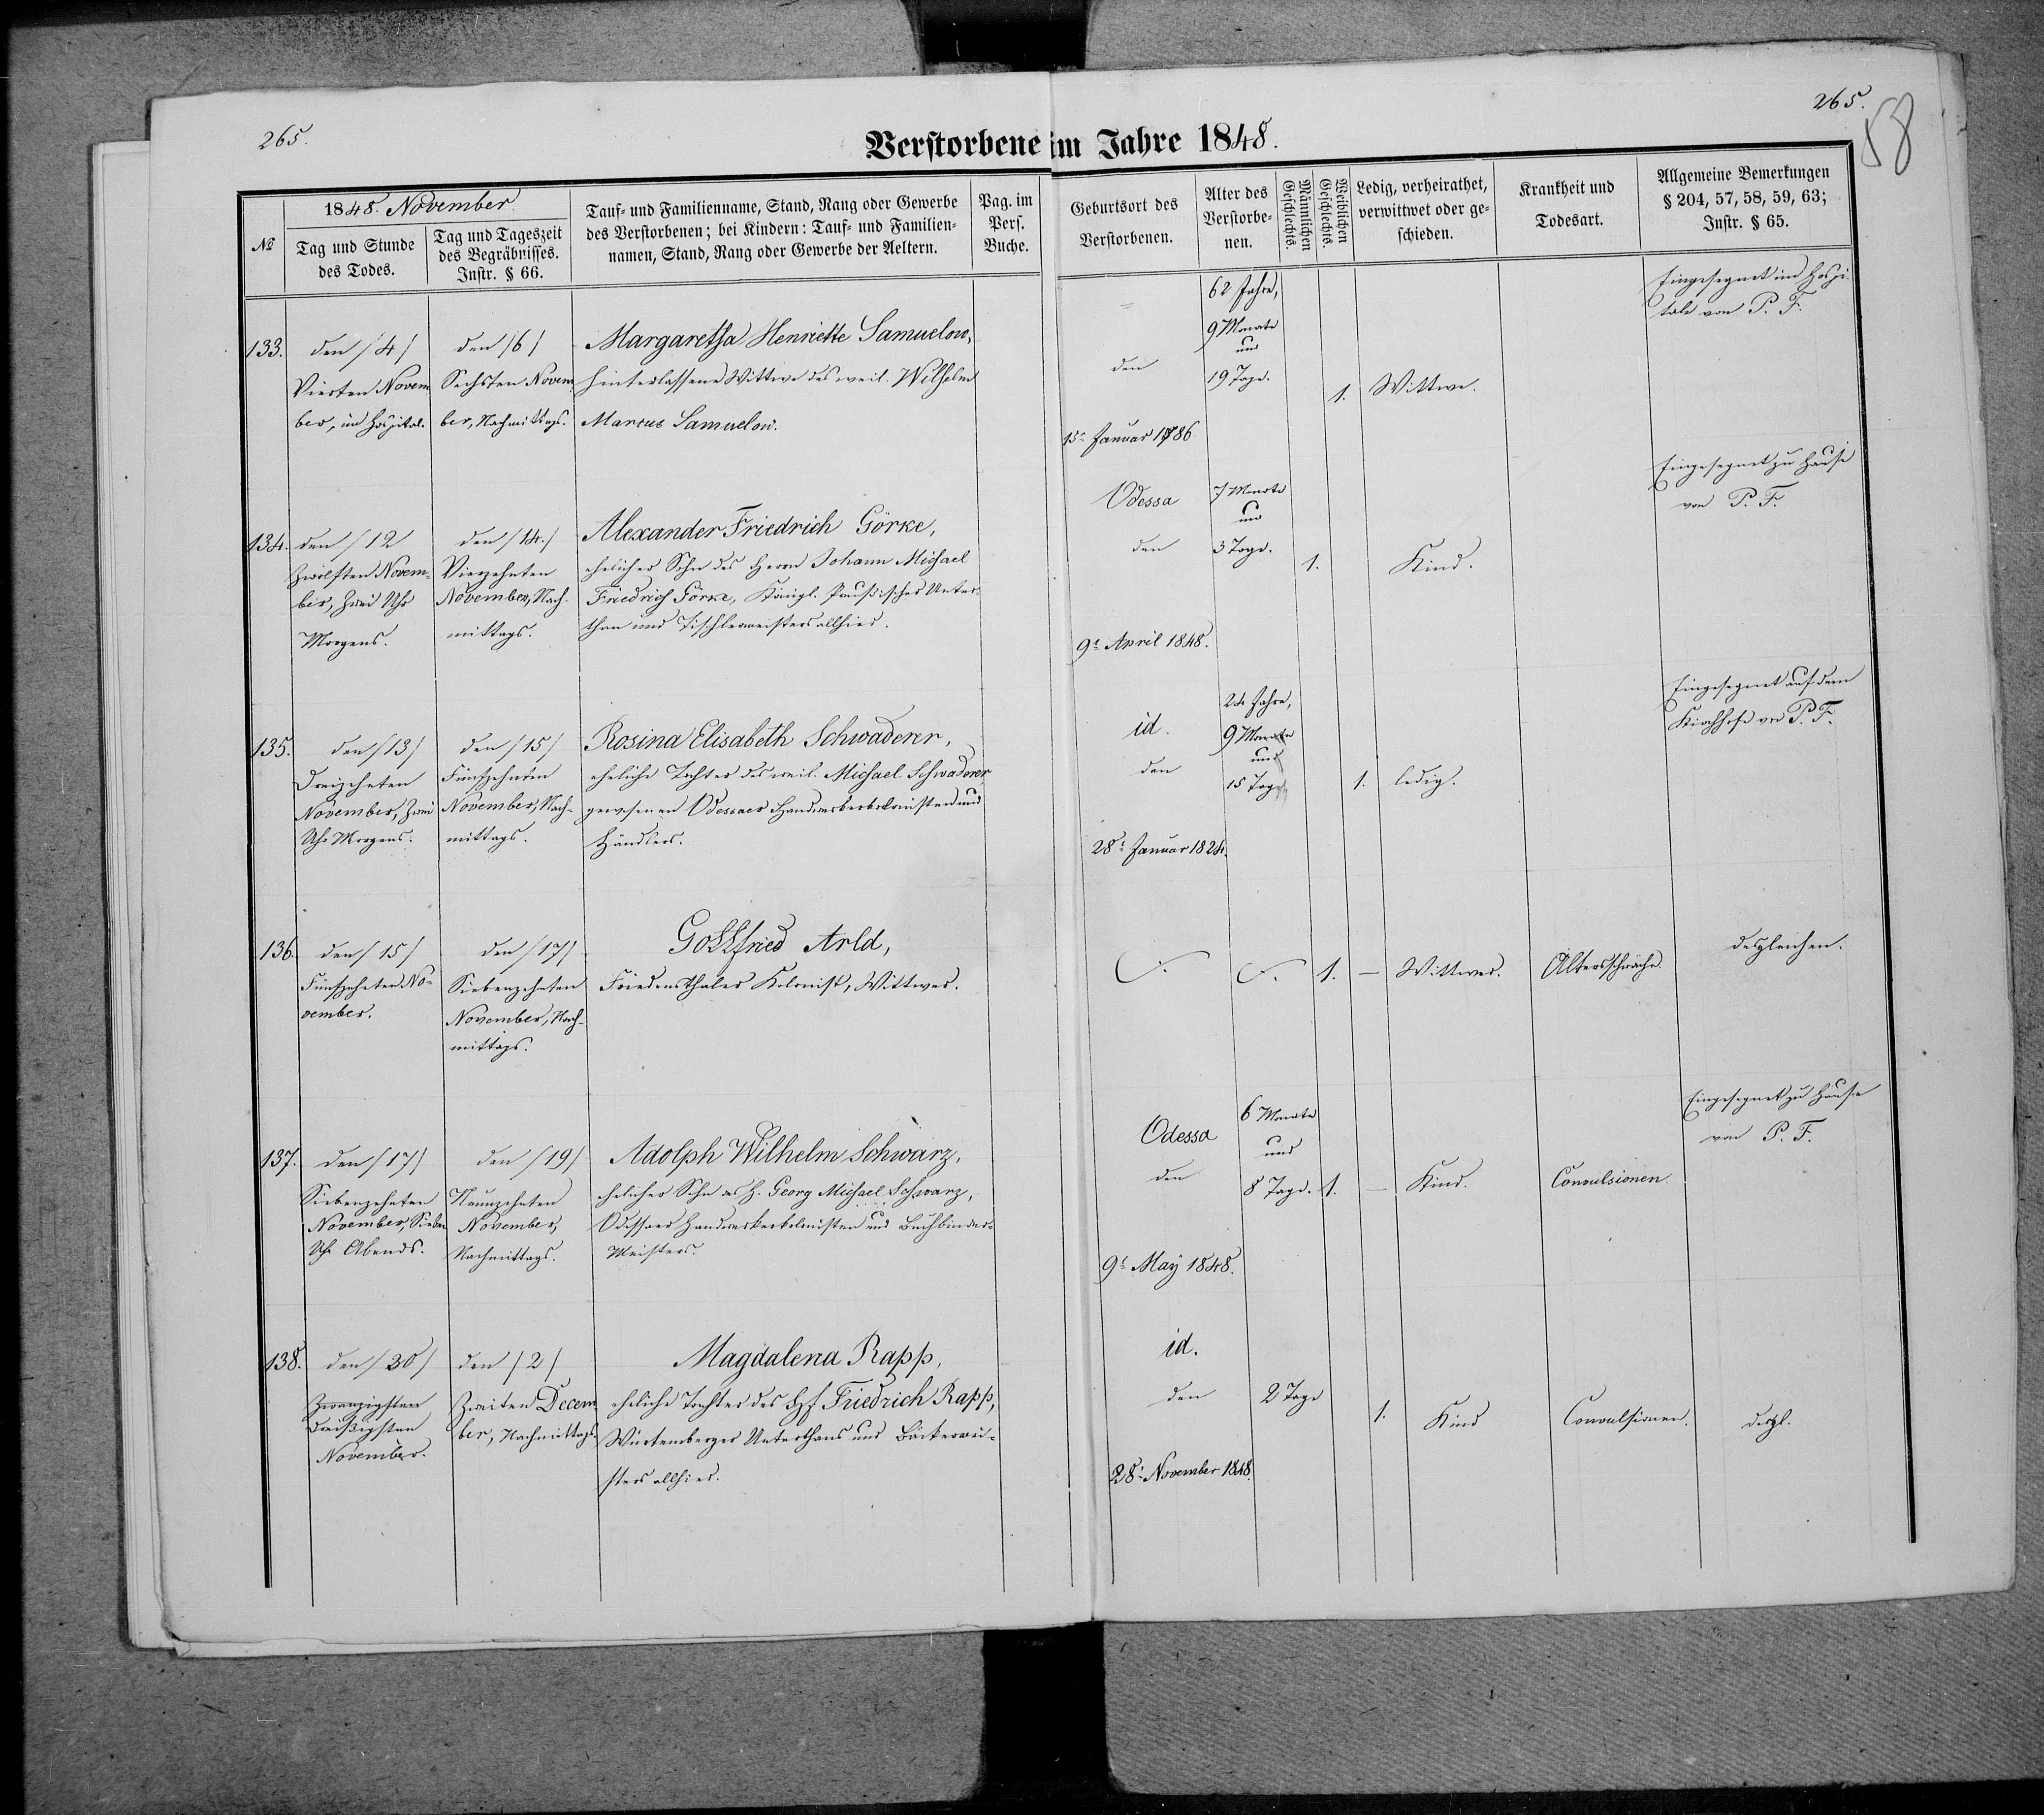 265.
265.
58
Verstorbene im Jahre 1848.
№
1848. November.
Tag und Stunde
des Todes.
Tag und Tageszeit
des Begräbnisses.
Instr. § 66.
Tauf- und Familienname, Stand, Rang oder Gewerbe
des Verstorbenen; bei Kindern: Tauf- und Familien-
namen, Stand, Rang oder Gewerbe der Aeltern.
Pag. im
Pers.
Buche.
Geburtsort des
Verstorbenen.
Alter des
Verstorbe-
nen.
Männlichen
Geschlechts.
Weiblichen
Geschlechts.
Ledig, verheirathet,
verwittwet oder ge-
schieden.
Krankheit und
Todesart.
Allgemeine Bemerkungen
§ 204, 57, 58, 59, 63;
Instr. § 65.
133.
den /4/
Vierten Novem
ber, im Hospital.
den /6/
Sechsten Novem
ber, Nachmittags.
Margaretha Henriette Samuelow,
hinterlassene Wittwe des weil. Wilhelm
Marcus Samuelow.
den
15t Januar 1786
62 Jahre,
9 Monate
und
19 Tage.
1.
Wittwe.
Eingesegnet im Hospi-
tale von P. F.
134.
den /12
Zwölften Novem-
ber, Zwei Uhr
Morgens.
den /14./
Vierzehnten
November, Nach-
mittags.
Alexander Friedrich Görke,
ehelicher Sohn des Herrn Johann Michael
Friedrich Görke, Königl. Preußischer Unter-
than und Tischlermeisters allhier.
Odessa
den
9t April 1848.
7 Monate
und
3 Tage.
1.
Kind.
Eingesegnet zu Hause
von P. F.
135.
den /13/
Dreizehnten
November, Zwei
Uhr Morgens.
den /15/
Fünfzehnten
November, Nach-
mittags.
Rosina Elisabeth Schwaderer,
eheliche Tochter des weil. Michael Schwaderer,
gewesenen Odessaer Handwerkerkolonisten und
Händlers.
id.
den
28t Januar 1824.
24 Jahre,
9 Monate
und
15 Tage
1.
ledig.
Eingesegnet auf dem
Kirchhofe von P. F.
136.
den /15/
Fünfzehnten No-
vember.
den /17/
Siebenzehnten
November, Nach-
mittags.
Gottfried Arld,
Friedensthaler Kolonist, Wittwer.
1.
—
Wittwer.
Altersschwäche.
desgleichen.
137.
den /17/
Siebenzehnten
November, Sieben
Uhr Abends.
den /19/
Neunzehnten
November,
Nachmittags.
Adolph Wilhelm Schwarz,
ehelicher Sohn des H. Georg Michael Schwarz,
Odessaer Handwerkerkolonisten und Buchbinder-
Meisters.
Odessa
den
9t May 1848.
6 Monate
und
8 Tage.
1.
—
Kind.
Convulsionen.
Eingesegnet zu Hause
von P. F.
138.
den /30/
Zwanzigsten
Dreißigsten
November.
den /2/
Zweiten Decem
ber, Nachmittags
Magdalena Rapp,
eheliche Tochter des Friedrich Rapp,
Würtemberger Unterthans und Bäckermei-
sters allhier.
id.
den
28t November 1848.
2 Tage
1.
Kind
Convulsionen.
desgl.